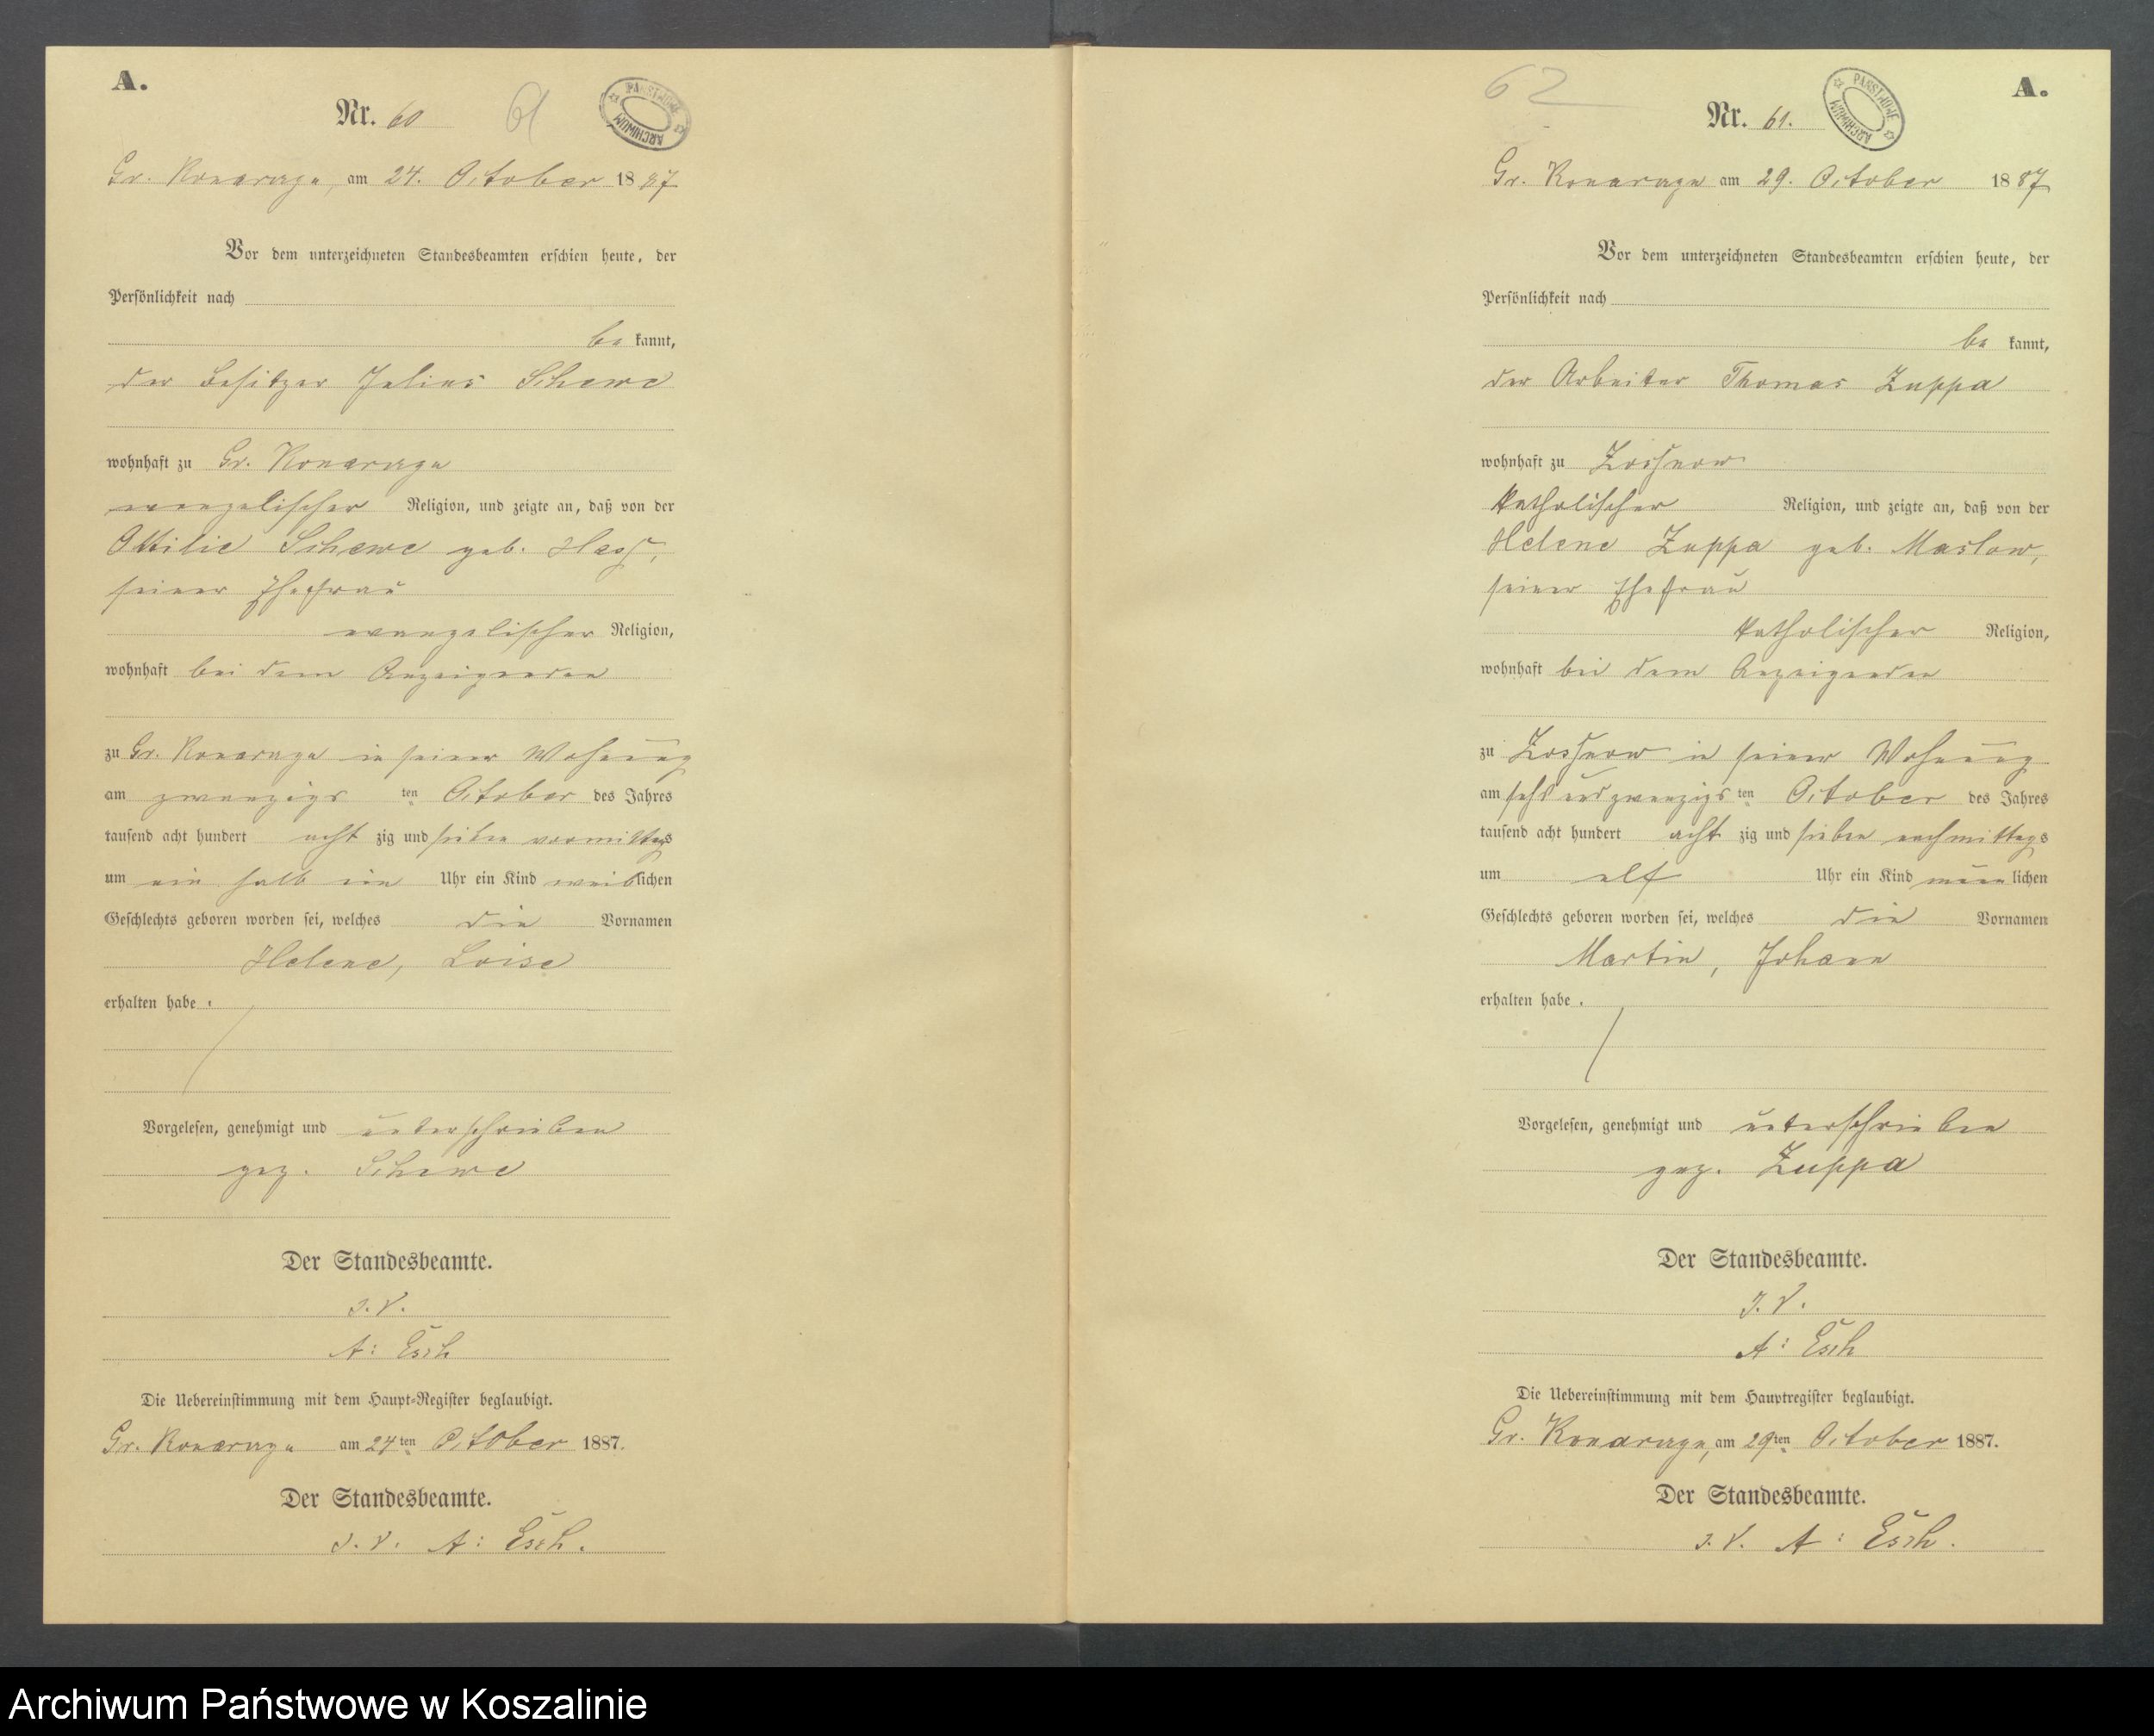 A.
Nr. 60
61
ARCHIWUM PAŃSTWOWE
Gr. Konarczyn, am 24. October 1887
Vor dem unterzeichneten Standesbeamten erschien heute, der
Persönlichkeit nach
be kannt,
der Besitzer Julius Schewe
wohnhaft zu Gr. Konarczyn
evangelischer Religion, und zeigte an, daß von der
Ottilie Schewe geb. Hass,
seiner Ehefrau
evangelischer Religion,
wohnhaft bei dem Anzeigenden
zu Gr. Konarczyn in seiner Wohnung
am zwanzigsten October des Jahres
tausend acht hundert acht zig und sieben vormittags
um ein halb ein Uhr ein Kind weiblichen
Geschlechts geboren worden sei, welches die Vornamen
Helene, Loise
erhalten habe.
Vorgelesen, genehmigt und unterschrieben
gez. Schewe
Der Standesbeamte.
J. V.
A: Esch
Die Uebereinstimmung mit dem Haupt-Register beglaubigt.
Gr. Konarczyn am 24ten October 1887.
Der Standesbeamte.
J. V. A: Esch.
62
A.
Nr. 61.
ARCHIWUM PAŃSTWOWE
Gr. Konarczyn am 29. October 1887
Vor dem unterzeichneten Standesbeamten erschien heute, der
Persönlichkeit nach
be kannt,
der Arbeiter Thomas Zuppa
wohnhaft zu
katholischer Religion, und zeigte an, daß von der
Helene Zuppa geb. Maslow,
seiner Ehefrau
katholischer Religion,
wohnhaft bei dem Anzeigenden
zu in seiner Wohnung
am sechsundzwanzigsten October des Jahres
tausend acht hundert acht zig und sieben nachmittags
um elf Uhr ein Kind männlichen
Geschlechts geboren worden sei, welches die Vornamen
Martin, Johann
erhalten habe.
Vorgelesen, genehmigt und unterschrieben
gez. Zuppa
Der Standesbeamte.
J. V.
A: Esch
Die Uebereinstimmung mit dem Hauptregister beglaubigt.
Gr. Konarczyn, am 29ten October 1887.
Der Standesbeamte.
J. V. A: Esch.
Archiwum Państwowe w Koszalinie